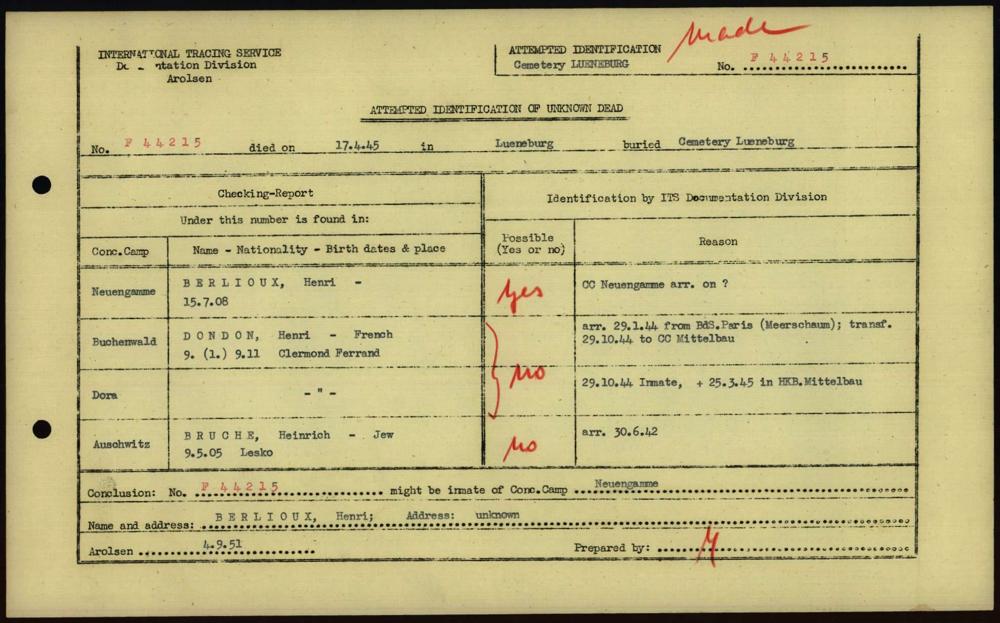 made
INTERNATIONAL TRACING SERVICE
Documentation Division
Arolsen
ATTEMPTED IDENTIFICATION
Cemetery LUENEBURG
No. F 44215
ATTEMPTED IDENTIFICATION OF UNKNOWN DEAD
No. F 44215 died on 17.4.45 in Lueneburg buried Cemetery Lueneburg
Checking-Report
Under this number is found in:
Identification by ITS Documentation Division
Conc.Camp Name - Nationality - Birth dates & place
Possible
(Yes or no)
Reason
Neuengamme
BERLIOUX, Henri -
15.7.08
yes
CC Neuengamme arr. on ?
Buchenwald
DONDON, Henri - French
9. (1.) 9.11 Clermond Ferrand
arr. 29.1.44 from BdS.Paris (Meerschaum); transf.
29.10.44 to CC Mittelbau
Dora
- " -
no
29.10.44 Inmate, + 25.3.45 in HKB.Mittelbau
Auschwitz
BRUCHE, Heinrich - Jew
9.5.05 Lesko
no
arr. 30.6.42
Conclusion: No. F 44215 might be inmate of Conc.Camp Neuengamme
Name and address: BERLIOUX, Henri; Address: unknown
Arolsen 4.9.51 Prepared by: